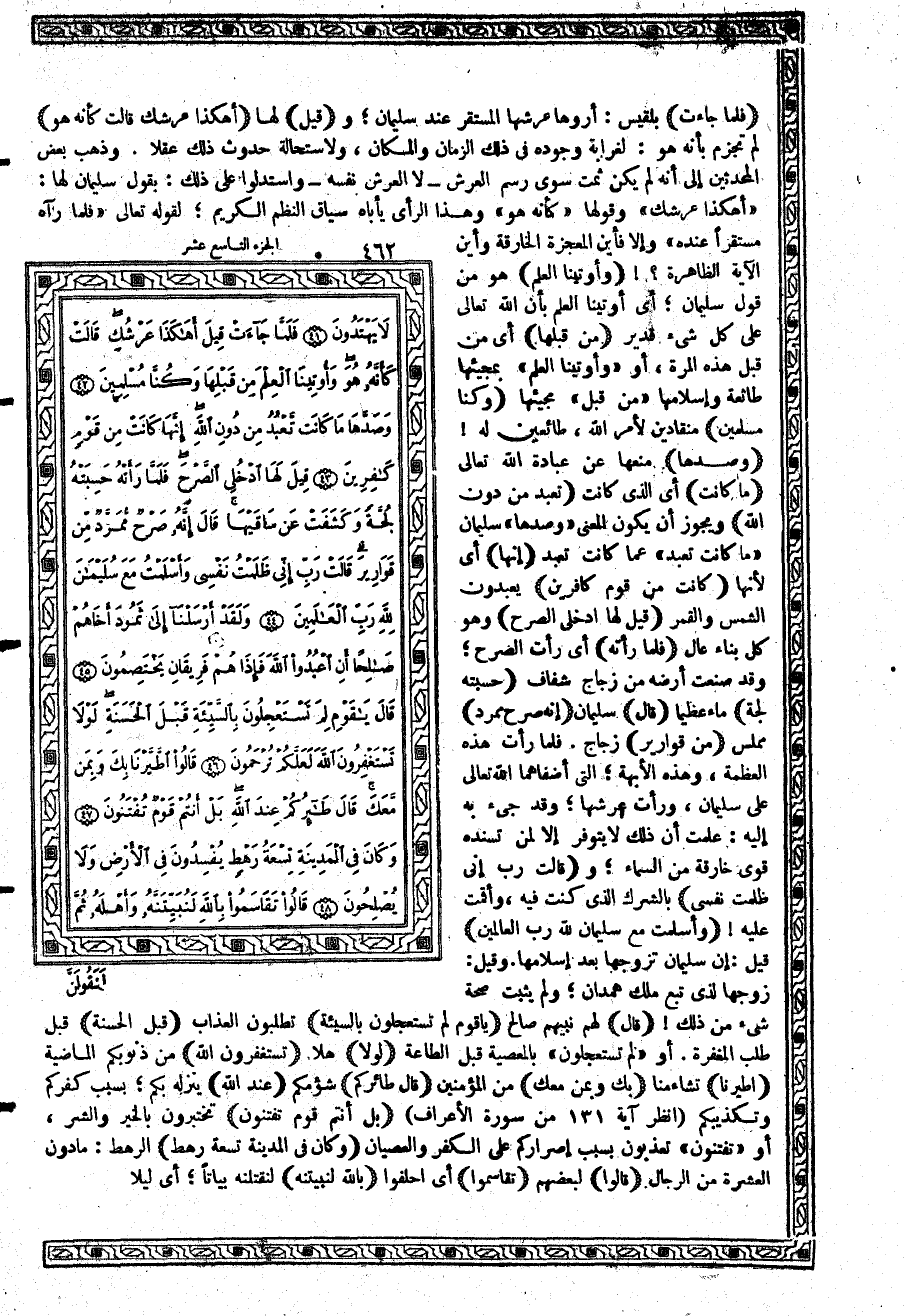 (فلما جاءت) بلقيس : أروها عرشها المستقر عند سليمان ؛ و (قيل) لها (أهكذا عرشك قالت كأنه هو)
لم تجزم بأنه هو : لغرابة وجوده فى ذلك الزمان والمكان ، ولاستحالة حدوث ذلك عقلا . وذهب بعض
المحدثين إلى أنه لم يكن ثمت سوى رسم العرش – لا العرش نفسه – واستدلوا على ذلك : بقول سليمان لها :
«أهكذا عرشك» وقولها «كأنه هو» وهذا الرأى يأباه سياق النظم الكريم ؛ لقوله تعالى «فلما رآه
مستقراً عنده» وإلا فأين المعجزة الخارقة وأين
الآية الظاهرة ؟ ! (وأوتينا العلم) هو من
قول سليمان ؛ أى أوتينا العلم بأن الله تعالى
على كل شىء قدير (من قبلها) أى من
قبل هذه المرة ، أو «وأوتينا العلم» بمجيئها
طائعة وإسلامها «من قبل» مجيئها (وكنا
مسلمين) منقادين لأمر الله ، طائعين له !
(وصدها) منعها عن عبادة الله تعالى
(ما كانت) أى الذى كانت (تعبد من دون
الله) ويجوز أن يكون المعنى «وصدها» سليمان
«ما كانت تعبد» عما كانت تعبد (إنها) أى
لأنها (كانت من قوم كافرين) يعبدون
الشمس والقمر (قيل لها ادخلى الصرح) وهو
كل بناء عال (فلما رأته) أى رأت الصرح ؛
وقد صنعت أرضه من زجاج شفاف (حسبته
لجة) ماء عظيما (قال) سليمان (إنه صرح ممرد)
مملس (من قوارير) زجاج . فلما رأت هذه
العظمة ، وهذه الأبهة ؛ التى أضفاهما الله تعالى
على سليمان ، ورأت عرشها ؛ وقد جىء به
إليه : علمت أن ذلك لا يتوفر إلا لمن تسنده
قوى خارقة من السماء ؛ و (قالت رب إنى
ظلمت نفسى) بالشرك الذى كنت فيه ، وأقمت
عليه ! (وأسلمت مع سليمان لله رب العالمين)
قيل : إن سليمان تزوجها بعد إسلامها . وقيل :
زوجها لذى تبع ملك همدان ؛ ولم يثبت صحة
الجزء التاسع عشر ٤٦٢
لَا يَهْتَدُونَ ٤١ فَلَمَّا جَآءَتْ قِيلَ أَهَٰكَذَا عَرْشُكِ ۖ قَالَتْ
كَأَنَّهُۥ هُوَ ۚ وَأُوتِينَا ٱلْعِلْمَ مِن قَبْلِهَا وَكُنَّا مُسْلِمِينَ ٤٢
وَصَدَّهَا مَا كَانَت تَّعْبُدُ مِن دُونِ ٱللَّهِ ۖ إِنَّهَا كَانَتْ مِن قَوْمٍ
كَٰفِرِينَ ٤٣ قِيلَ لَهَا ٱدْخُلِى ٱلصَّرْحَ ۖ فَلَمَّا رَأَتْهُ حَسِبَتْهُ
لُجَّةً وَكَشَفَتْ عَن سَاقَيْهَا ۚ قَالَ إِنَّهُۥ صَرْحٌ مُّمَرَّدٌ مِّن
قَوَارِيرَ ۗ قَالَتْ رَبِّ إِنِّى ظَلَمْتُ نَفْسِى وَأَسْلَمْتُ مَعَ سُلَيْمَٰنَ
لِلَّهِ رَبِّ ٱلْعَٰلَمِينَ ٤٤ وَلَقَدْ أَرْسَلْنَآ إِلَىٰ ثَمُودَ أَخَاهُمْ
صَٰلِحًا أَنِ ٱعْبُدُوا۟ ٱللَّهَ فَإِذَا هُمْ فَرِيقَانِ يَخْتَصِمُونَ ٤٥
قَالَ يَٰقَوْمِ لِمَ تَسْتَعْجِلُونَ بِٱلسَّيِّئَةِ قَبْلَ ٱلْحَسَنَةِ ۖ لَوْلَا
تَسْتَغْفِرُونَ ٱللَّهَ لَعَلَّكُمْ تُرْحَمُونَ ٤٦ قَالُوا۟ ٱطَّيَّرْنَا بِكَ وَبِمَن
مَّعَكَ ۚ قَالَ طَٰٓئِرُكُمْ عِندَ ٱللَّهِ ۖ بَلْ أَنتُمْ قَوْمٌ تُفْتَنُونَ ٤٧
وَكَانَ فِى ٱلْمَدِينَةِ تِسْعَةُ رَهْطٍ يُفْسِدُونَ فِى ٱلْأَرْضِ وَلَا
يُصْلِحُونَ ٤٨ قَالُوا۟ تَقَاسَمُوا۟ بِٱللَّهِ لَنُبَيِّتَنَّهُۥ وَأَهْلَهُۥ ثُمَّ
لَنَقُولَنَّ
شىء من ذلك ! (قال) لهم نبيهم صالح (يا قوم لم تستعجلون بالسيئة) تطلبون العذاب (قبل الحسنة) قبل
طلب المغفرة . أو «لم تستعجلون» بالمعصية قبل الطاعة (لولا) هلا (تستغفرون الله) من ذنوبكم الماضية
(اطيرنا) تشاءمنا (بك وبمن معك) من المؤمنين (قال طائركم) شؤمكم (عند الله) ينزله بكم ؛ بسبب كفركم
وتكذيبكم (انظر آية ١٣١ من سورة الأعراف) (بل أنتم قوم تفتنون) تختبرون بالخير والشر ،
أو «تفتنون» تعذبون بسبب إصراركم على الكفر والعصيان (وكان فى المدينة تسعة رهط) الرهط : مادون
العشرة من الرجال (قالوا) لبعضهم (تقاسموا) أى احلفوا (بالله لنبيتنه) لنقتلنه بياتاً ؛ أى ليلا